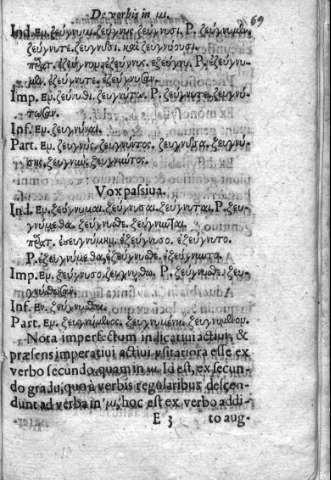 De verbis in μι. 69
Ind. Εν. ζεύγνυμι, ζεύγνυς, ζεύγνυσι, P. ζεύγνυμεν,
ζεύγνυτε, ζεύγνυσι, καὶ ζευγνύουσι.
ἐζεύγνυν, ἐζεύγνυς, ἐζεύγνυ, P. ἐζεύγνυ-
μεν, ἐζεύγνυτε, ἐζεύγνυσαν.
Imp. Εν. ζεύγνυθι, ζευγνύτω, P. ζεύγνυτε, ζευγνύ-
τωσαν.
Inf. Εν. ζευγνύναι.
Part. Εν. ζευγνύς, ζευγνύντος, ζευγνῦσα, ζευγνύ-
σης, ζευγνὺν, ζευγνύντος.
Vox passiua.
Ind. Εν. ζεύγνυμαι, ζεύγνυσαι, ζεύγνυται, P. ζευ-
γνύμεθα, ζεύγνυσθε, ζεύγνυνται,
ἐζευγνύμην, ἐζεύγνυσο, ἐζεύγνυτο.
P. ἐζευγνύμεθα, ἐζεύγνυσθε, ἐζεύγνυντο.
Imp. Εν. ζεύγνυσο, ζευγνύσθω, P. ζεύγνυσθε, ζευ-
γνύσθωσαν.
Inf. Εν. ζεύγνυσθαι.
Part. Εν. ζευγνύμενος, ζευγνυμένη, ζευγνύμενον.
Nota imperfectum indicatiui actiui, &
præsens imperatiui actiui vsitatiora esse ex
verbo secundo, quam in μι. Id est, ex secun-
do gradu, quo à verbis regularibus descen-
dunt ad verba in μι, hoc est ex verbo addi-
E 3 to aug-